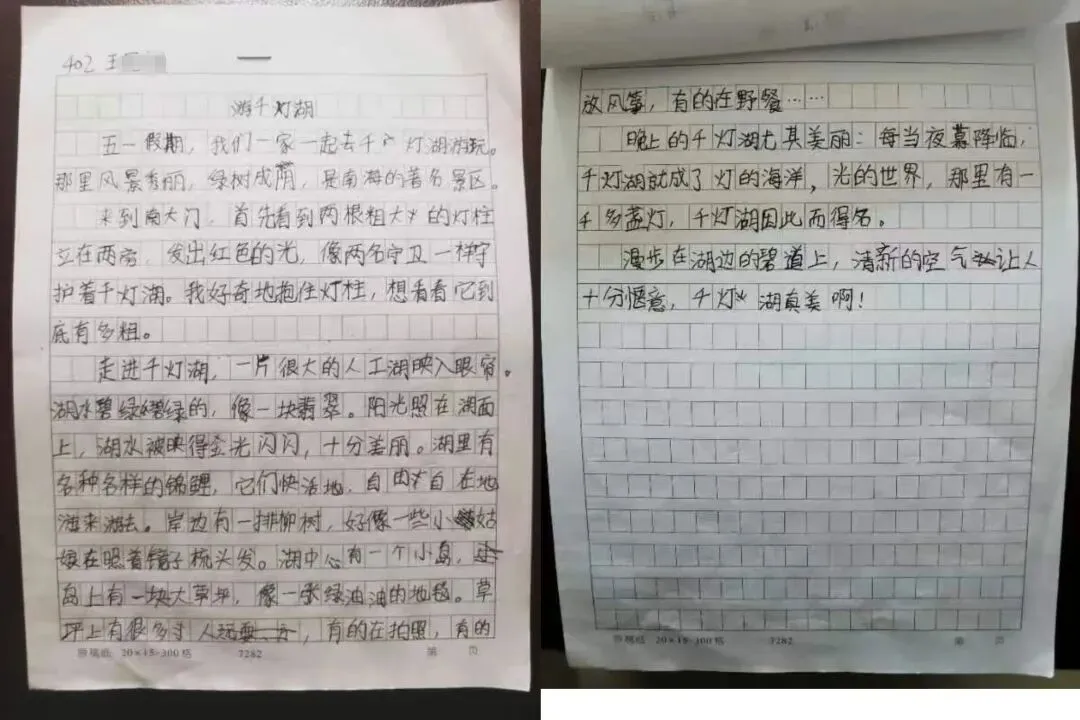 402 王
游千灯湖
五一假期，我们一家一起去千灯湖游玩。
那里风景秀丽，绿树成荫，是南海的著名景区。
来到南大门，首先看到两根粗大的灯柱
立在两旁，发出红色的光，像两名守卫一样守
护着千灯湖。我好奇地抱住灯柱，想看看它到
底有多粗。
走进千灯湖，一片很大的人工湖映入眼帘。
湖水碧绿碧绿的，像一块翡翠。阳光照在湖面
上，湖水被映得金光闪闪，十分美丽。湖里有
各种各样的锦鲤，它们快活地，自由自在地
游来游去。岸边有一排柳树，好像一些小姑
娘在照着镜子梳头发。湖中心有一个小岛，
岛上有一块大草坪，像一张绿油油的地毯。草
坪上有很多人，有的在拍照，有的
原稿纸 20×15=300格 7282 第 页
放风筝，有的在野餐……
晚上的千灯湖尤其美丽：每当夜幕降临，
千灯湖就成了灯的海洋，光的世界，那里有一
千多盏灯，千灯湖因此而得名。
漫步在湖边的碧道上，清新的空气让人
十分惬意，千灯湖真美啊！
原稿纸 20×15=300格 7282 第 页